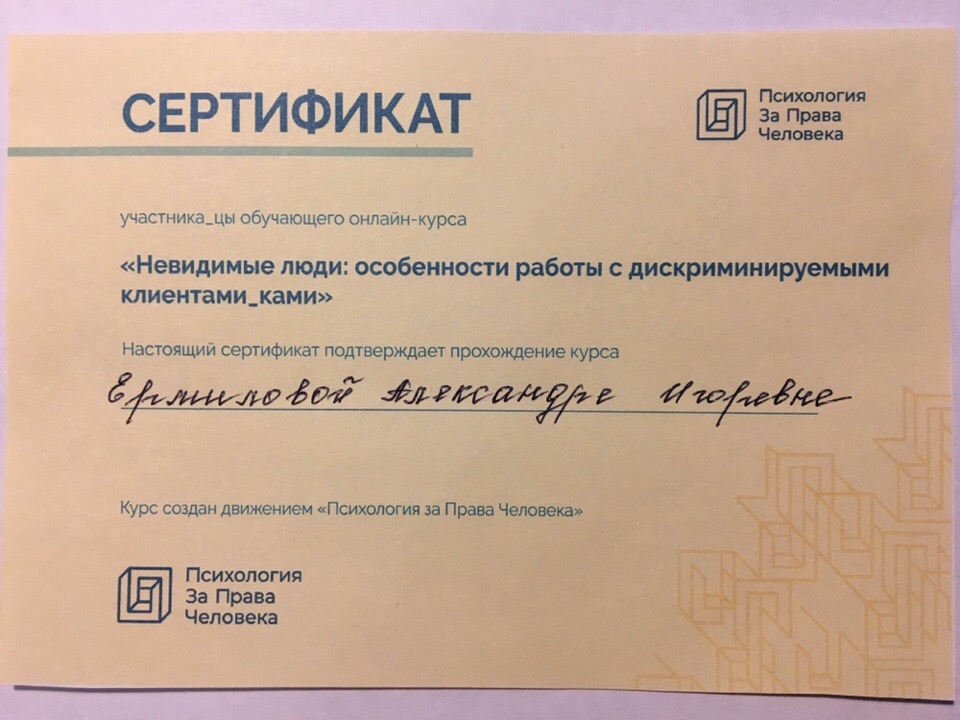 СЕРТИФИКАТ
Психология
За Права
Человека
участника_цы обучающего онлайн-курса
«Невидимые люди: особенности работы с дискриминируемыми
клиентами_ками»
Настоящий сертификат подтверждает прохождение курса
Ермиловой Александре Игоревне
Курс создан движением «Психология за Права Человека»
Психология
За Права
Человека